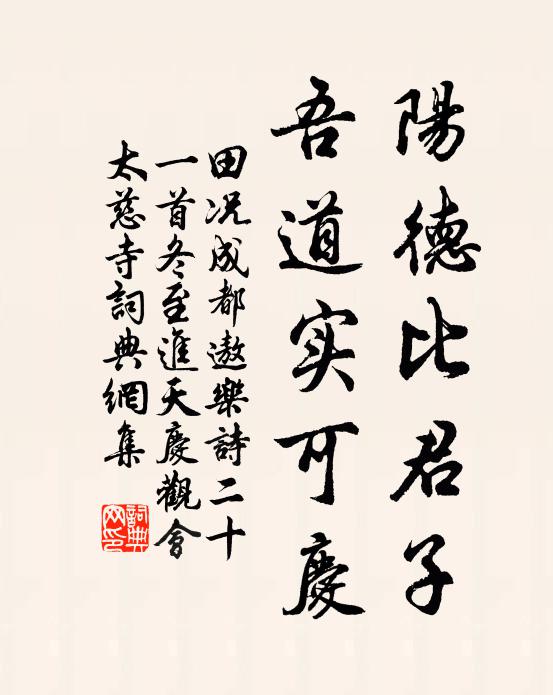 陽德比君子
吾道实可慶
田况成都遨樂詩二十
一首冬至進天慶觀會
太慈寺詞典網集
詞典网印